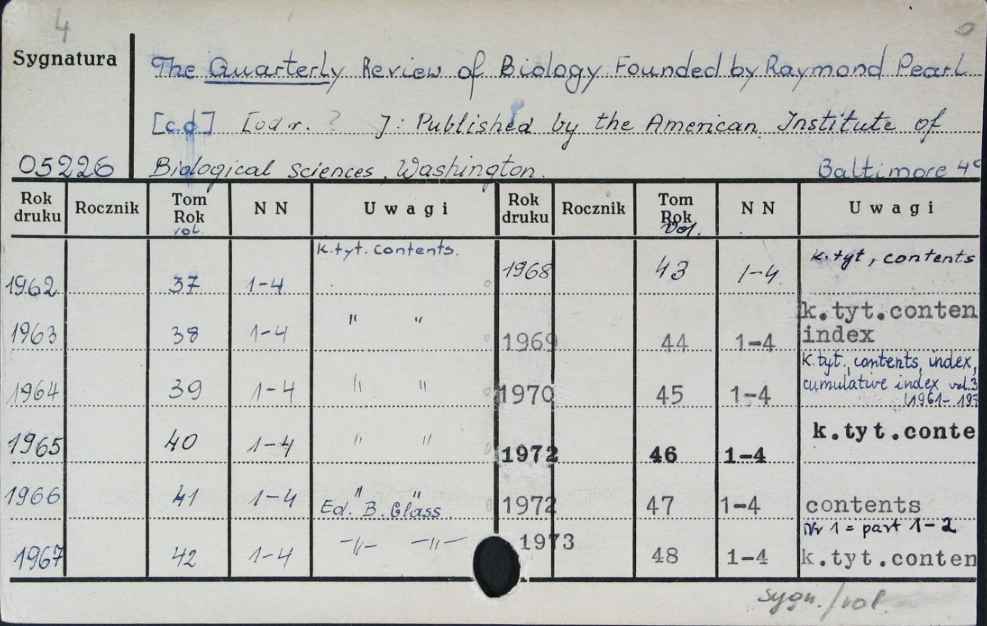 4
Sygnatura The Quarterly Review of Biology Founded by Raymond Pearl
[c.d] [odr. ? ]: Published by the American Institute of
05226 Biological Sciences, Washington. Baltimore
Rok druku Rocznik Tom Rok vol. N N Uwagi Rok druku Rocznik Tom Rok Vol. N N Uwagi
1962 37 1-4 k.tyt. contents. 1968 43 1-4 k.tyt, contents
1963 38 1-4 " " 1969 44 1-4 k.tyt.conten index
1964 39 1-4 " " 1970 45 1-4 k.tyt., contents, index, cumulative index vol.3 (1961-197
1965 40 1-4 " " 1972 46 1-4 k.tyt.conte
1966 41 1-4 " " Ed. B. Glass 1972 47 1-4 contents
1967 42 1-4 -"- -"- 1973 48 1-4 Nr 1 = part 1-2 k.tyt.conten
sygn./vol.